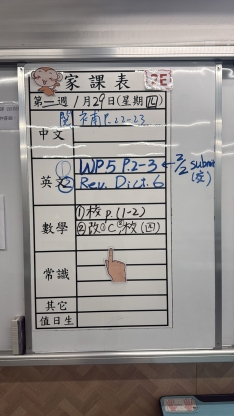 家課表
第二週 1月29日(星期四)
中文
P.22-23
英文
① WP5 P.2-3 ← 2/2 submit
② Rev. Dict. 6
數學
①校 P.(1-2)
②改 C 校(四)
常識
其它
值日生